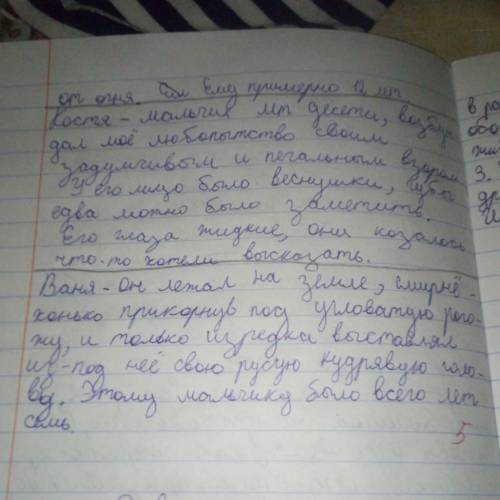 от огня. Ему примерно 12 лет
Костя - мальчик лет десети, возбуж
дал моё любопытство своим
задумчивым и печальным взором
У его лицо было веснушки, губы
едва можно было заметить.
Его глаза жидкие, они козалось
что-то хотели высказать.
Ваня - он лежал на земле, смирнё-
хонько прикорнув под угловатую рого-
жу, и только изредка выставлял
из-под неё свою русую кудрявую голо-
ву. Этому мальчику было всего лет
семь.
5
в ра
3.